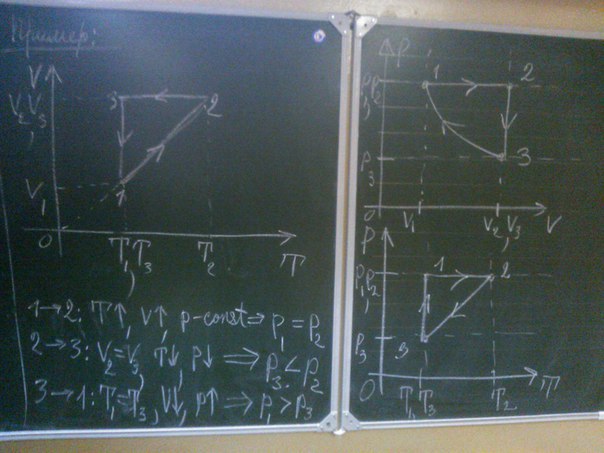 Пример:
V
V₂,V₃
3
2
V₁
1
0
T₁,T₃
T₂
T
1→2: T↑, V↑, p-const ⇒ p₁ = p₂
2→3: V₂=V₃, T↓, p↓ ⇒ p₃ < p₂
3→1: T₁=T₃, V↓, p↑ ⇒ p₁ > p₃
p
p₁,p₂
1
2
p₃
3
0
V₁
V₂,V₃
V
p
p₁,p₂
1
2
p₃
3
0
T₁,T₃
T₂
T